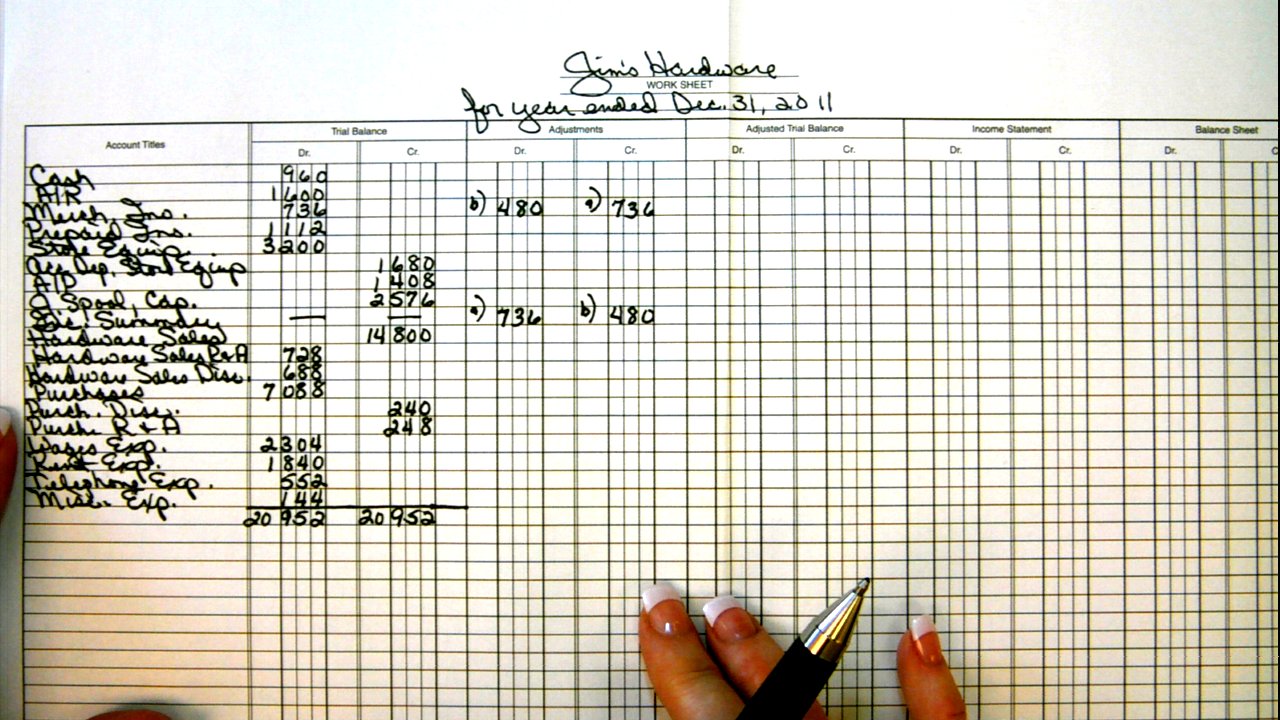 Jim's Hardware
WORK SHEET
for year ended Dec. 31, 2011
Account Titles Trial Balance Adjustments Adjusted Trial Balance Income Statement Balance Sheet
Dr. Cr. Dr. Cr. Dr. Cr. Dr. Cr. Dr. C
Cash 960
A/R 1600
Merch. Ins. 736 b) 480 a) 736
Prepaid Ins. 1112
Store Equip. 3200
Acc. Dep. Store Equip 1680
A/P 1408
J. Spool, Cap. 2576
Inc. Summary — — a) 736 b) 480
Hardware Sales 14800
Hardware Sales R&A 728
Hardware Sales Disc. 688
Purchases 7088
Purch. Disc. 240
Purch. R & A 248
Wages Exp. 2304
Rent Exp. 1840
Telephone Exp. 552
Misc. Exp. 144
20952 20952